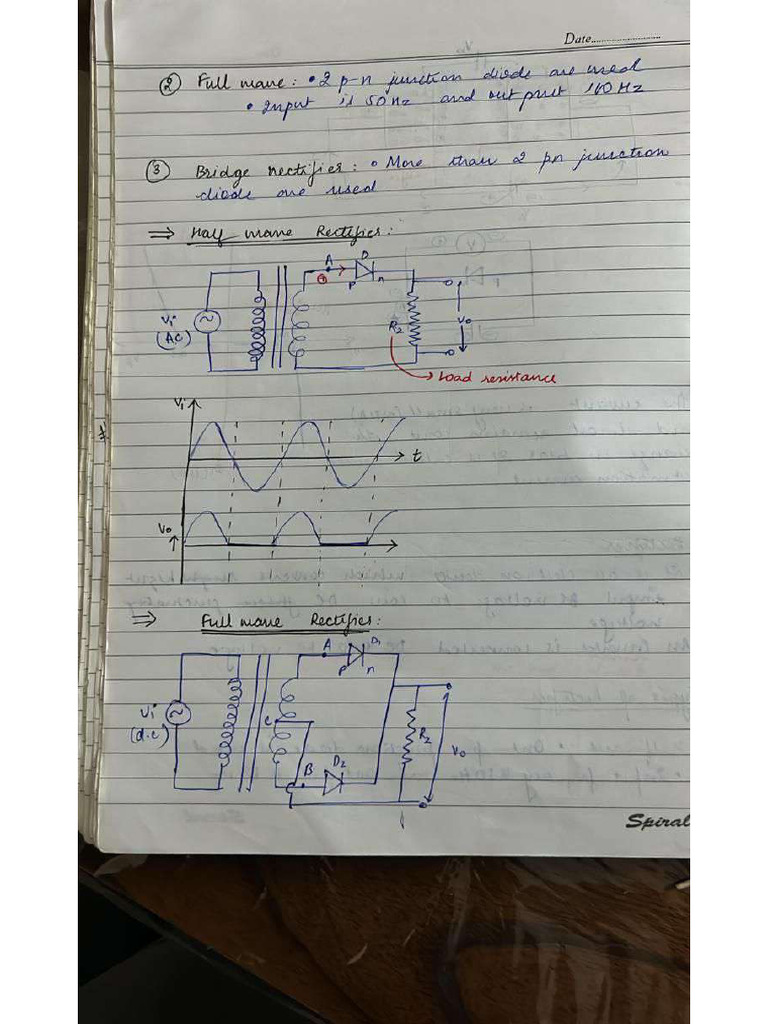 Date............
② Full wave: • 2 p-n junction diode are used
• Input is 50Hz and output 100Hz
③ Bridge rectifier: • More than 2 pn junction
diode are used
⇒ Half wave Rectifier:
A D
P n
Vi
(AC)
R2
Vo
→ Load resistance
Vi
t
Vo
⇒ Full wave Rectifier:
A D1
P n
Vi
(d.c)
C
R2
Vo
B D2
Spiral